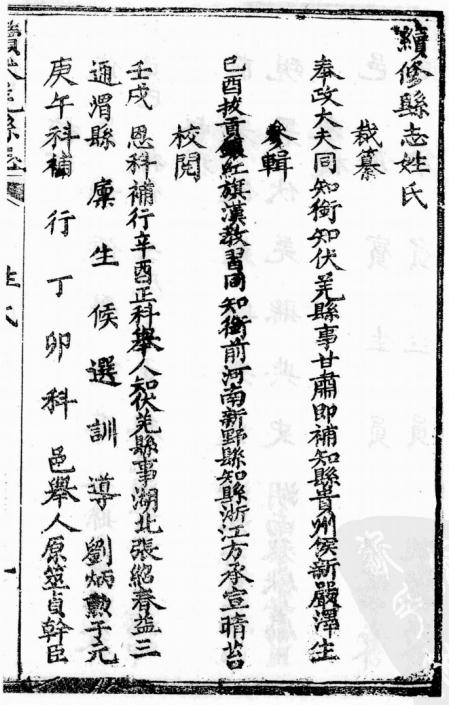 續修縣志姓氏
裁纂
奉政大夫同知銜知伏羌縣事甘肅即補知縣貴州侯新嚴澤生
參輯
己酉拔貢鑲紅旗漢教習同知銜前河南新野縣知縣浙江方承宣晴苔
校閱
壬戌恩科補行辛酉正科舉人知伏羌縣事湖北張紹春益三
通渭縣廩生候選訓導劉炳勲子元
庚午科補行丁卯科邑舉人原筮貞幹臣
續伏羌縣志
姓氏
一